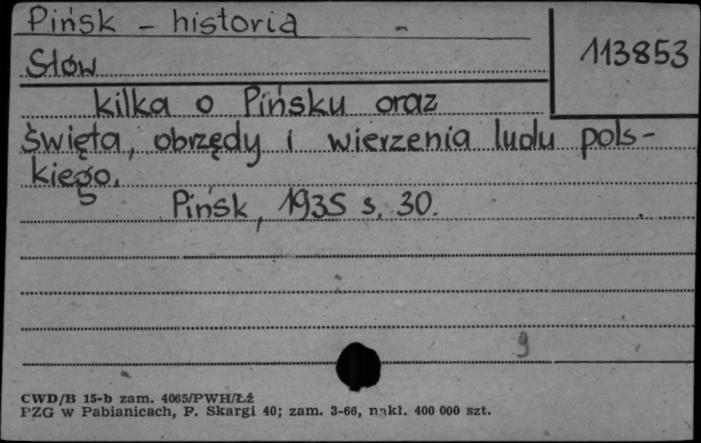 Pińsk - historia
113853
Słów
kilka o Pińsku oraz
święta, obrzędy i wierzenia ludu pols-
kiego.
Pińsk, 1935 s. 30.
9
CWD/B 15-b zam. 4065/PWH/Łź
PZG w Pabianicach, P. Skargi 40; zam. 3-66, nakł. 400 000 szt.